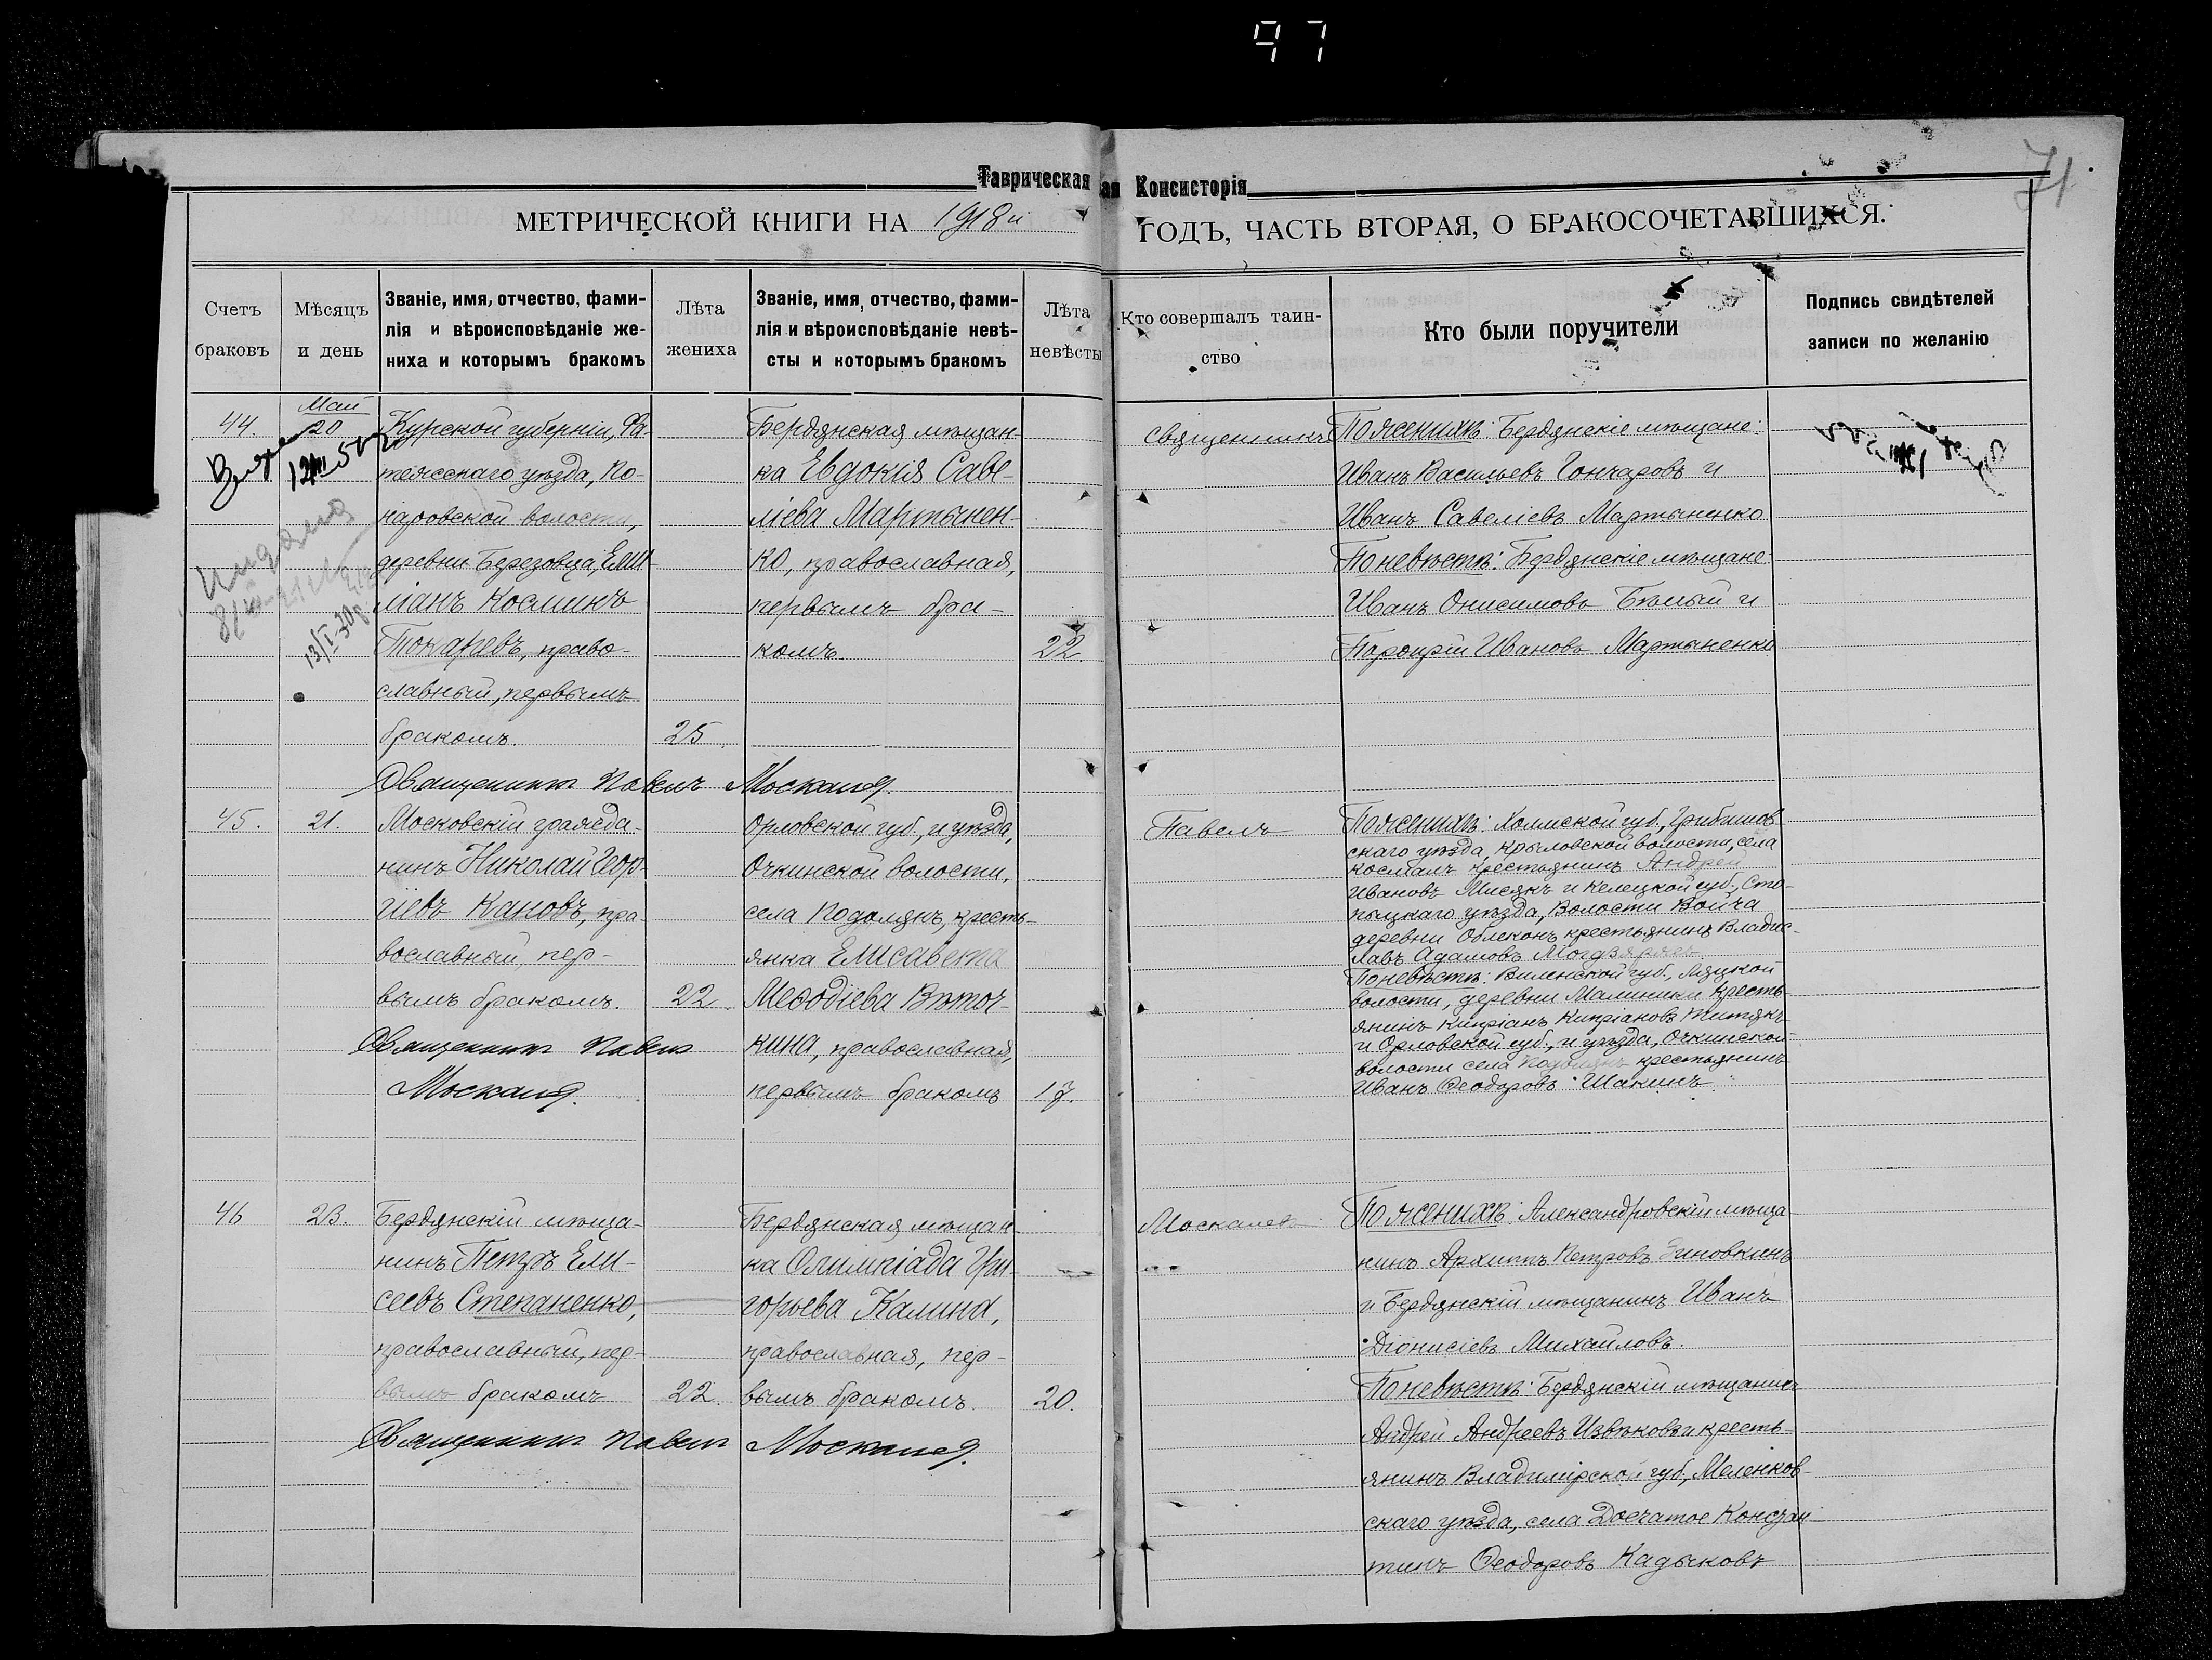 97
71.
Таврическая ая Консисторія
МЕТРИЧЕСКОЙ КНИГИ НА 1918й ГОДЪ, ЧАСТЬ ВТОРАЯ, О БРАКОСОЧЕТАВШИХСЯ.
Счетъ браковъ
Мѣсяцъ и день
Званіе, имя, отчество, фами-
лія и вѣроисповѣданіе же-
ниха и которымъ бракомъ
Лѣта жениха
Званіе, имя, отчество, фами-
лія и вѣроисповѣданіе невѣ-
сты и которымъ бракомъ
Лѣта невѣсты
Кто совершалъ таин-
ство
Кто были поручители
Подпись свидѣтелей
записи по желанію
44.
Май
20
Курской губерніи, Фа-
тежскаго уѣзда, Ко-
наровской волости,
деревни Березовца, Еми-
ліанъ Косминъ
Токаревъ, право-
славный, первымъ
бракомъ.
25.
Бердянская мѣщан-
ка Евдокія Саве-
ліева Мартынен-
ко, православная,
первымъ бра-
комъ.
22.
Священникъ
По женихѣ: Бердянскіе мѣщане:
Иванъ Васильевъ Гончаровъ и
Иванъ Савеліевъ Мартыненко
По невѣстѣ: Бердянскіе мѣщане:
Иванъ Онисимовъ Бѣлый и
Порфирій Ивановъ Мартыненко
Священникъ Павелъ Москалев
45.
21.
Московскій гражда-
нинъ Николай Геор-
гіевъ Кановъ, пра-
вославный, пер-
вымъ бракомъ.
22.
Священникъ Павелъ
Москалев
Орловской губ., и уѣзда,
Очкинской волости,
села Подолянъ, кресть-
янка Елисавета
Меѳодіева Вѣточ-
кина, православная,
первымъ бракомъ
17.
Павелъ
По женихѣ: Холмской губ., Грубешов-
скаго уѣзда, Крыловской волости, села
крестьянинъ Андрей
Ивановъ Мисякъ и Келецкой губ., Сто-
пницкаго уѣзда, Волости Войча
деревни Облеконъ крестьянинъ Владис-
лавъ Адамовъ
По невѣстѣ: Виленской губ.,
волости, деревни Малиники кресть-
янинъ Кипріанъ Кипріановъ
и Орловской губ., и уѣзда, Очкинской
волости села Подолянъ крестьянинъ
Иванъ Ѳеодоровъ Шакинъ
46
23.
Бердянскій мѣща-
нинъ Петръ Ели-
сеевъ Степаненко,
православный, пер-
вымъ бракомъ
22.
Бердянская мѣщан-
ка Олимпіада Гри-
горьева Калина,
православная, пер-
вымъ бракомъ.
20.
Москалевъ
По женихѣ: Александровскій мѣща-
нинъ Архипъ Петровъ Зиновкинъ
и Бердянскій мѣщанинъ Иванъ
Діонисіевъ Михайловъ.
По невѣстѣ: Бердянскій мѣщанинъ
Андрей Андреевъ Извѣковъ и кресть-
янинъ Владимірской губ., Меленков-
скаго уѣзда, села Досчатое Констан-
тинъ Ѳеодоровъ Кадыковъ
Священникъ Павелъ Москалев